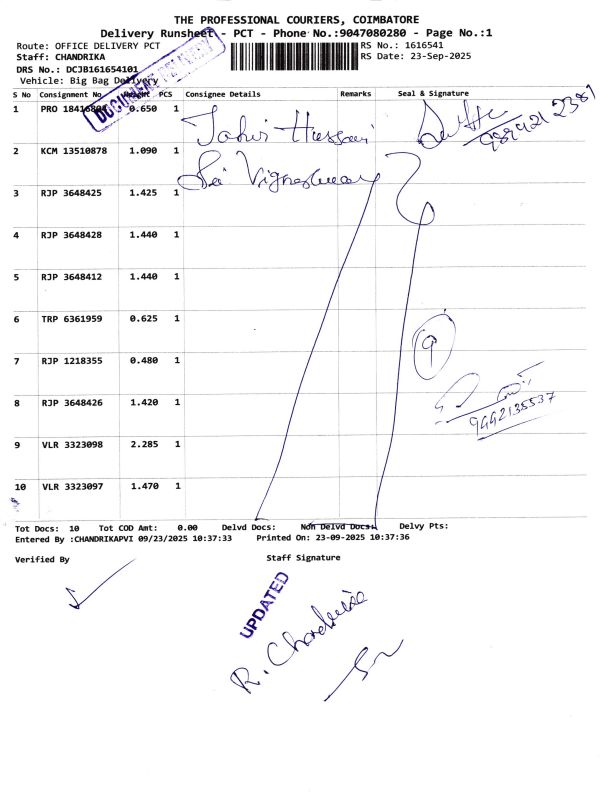 THE PROFESSIONAL COURIERS, COIMBATORE
Delivery Runsheet - PCT - Phone No.:9047080280 - Page No.:1
Route: OFFICE DELIVERY PCT
RS No.: 1616541
Staff: CHANDRIKA
RS Date: 23-Sep-2025
DRS No.: DCJB161654101
Vehicle: Big Bag Delivery
DOCUMENT DELIVERY
S No Consignment No Weight PCS Consignee Details Remarks Seal & Signature
1 PRO 0.650 1 Tahir Hussain
2 KCM 13510878 1.090 1 Sai Vigneshwar
3 RJP 3648425 1.425 1
4 RJP 3648428 1.440 1
5 RJP 3648412 1.440 1
6 TRP 6361959 0.625 1
9
7 RJP 1218355 0.480 1
8 RJP 3648426 1.420 1
9442135537
9 VLR 3323098 2.285 1
10 VLR 3323097 1.470 1
Tot Docs: 10 Tot COD Amt: 0.00 Delvd Docs: Non Delvd Docs: Delvy Pts:
Entered By :CHANDRIKAPVI 09/23/2025 10:37:33 Printed On: 23-09-2025 10:37:36
Verified By Staff Signature
UPDATED
R. Chandrika